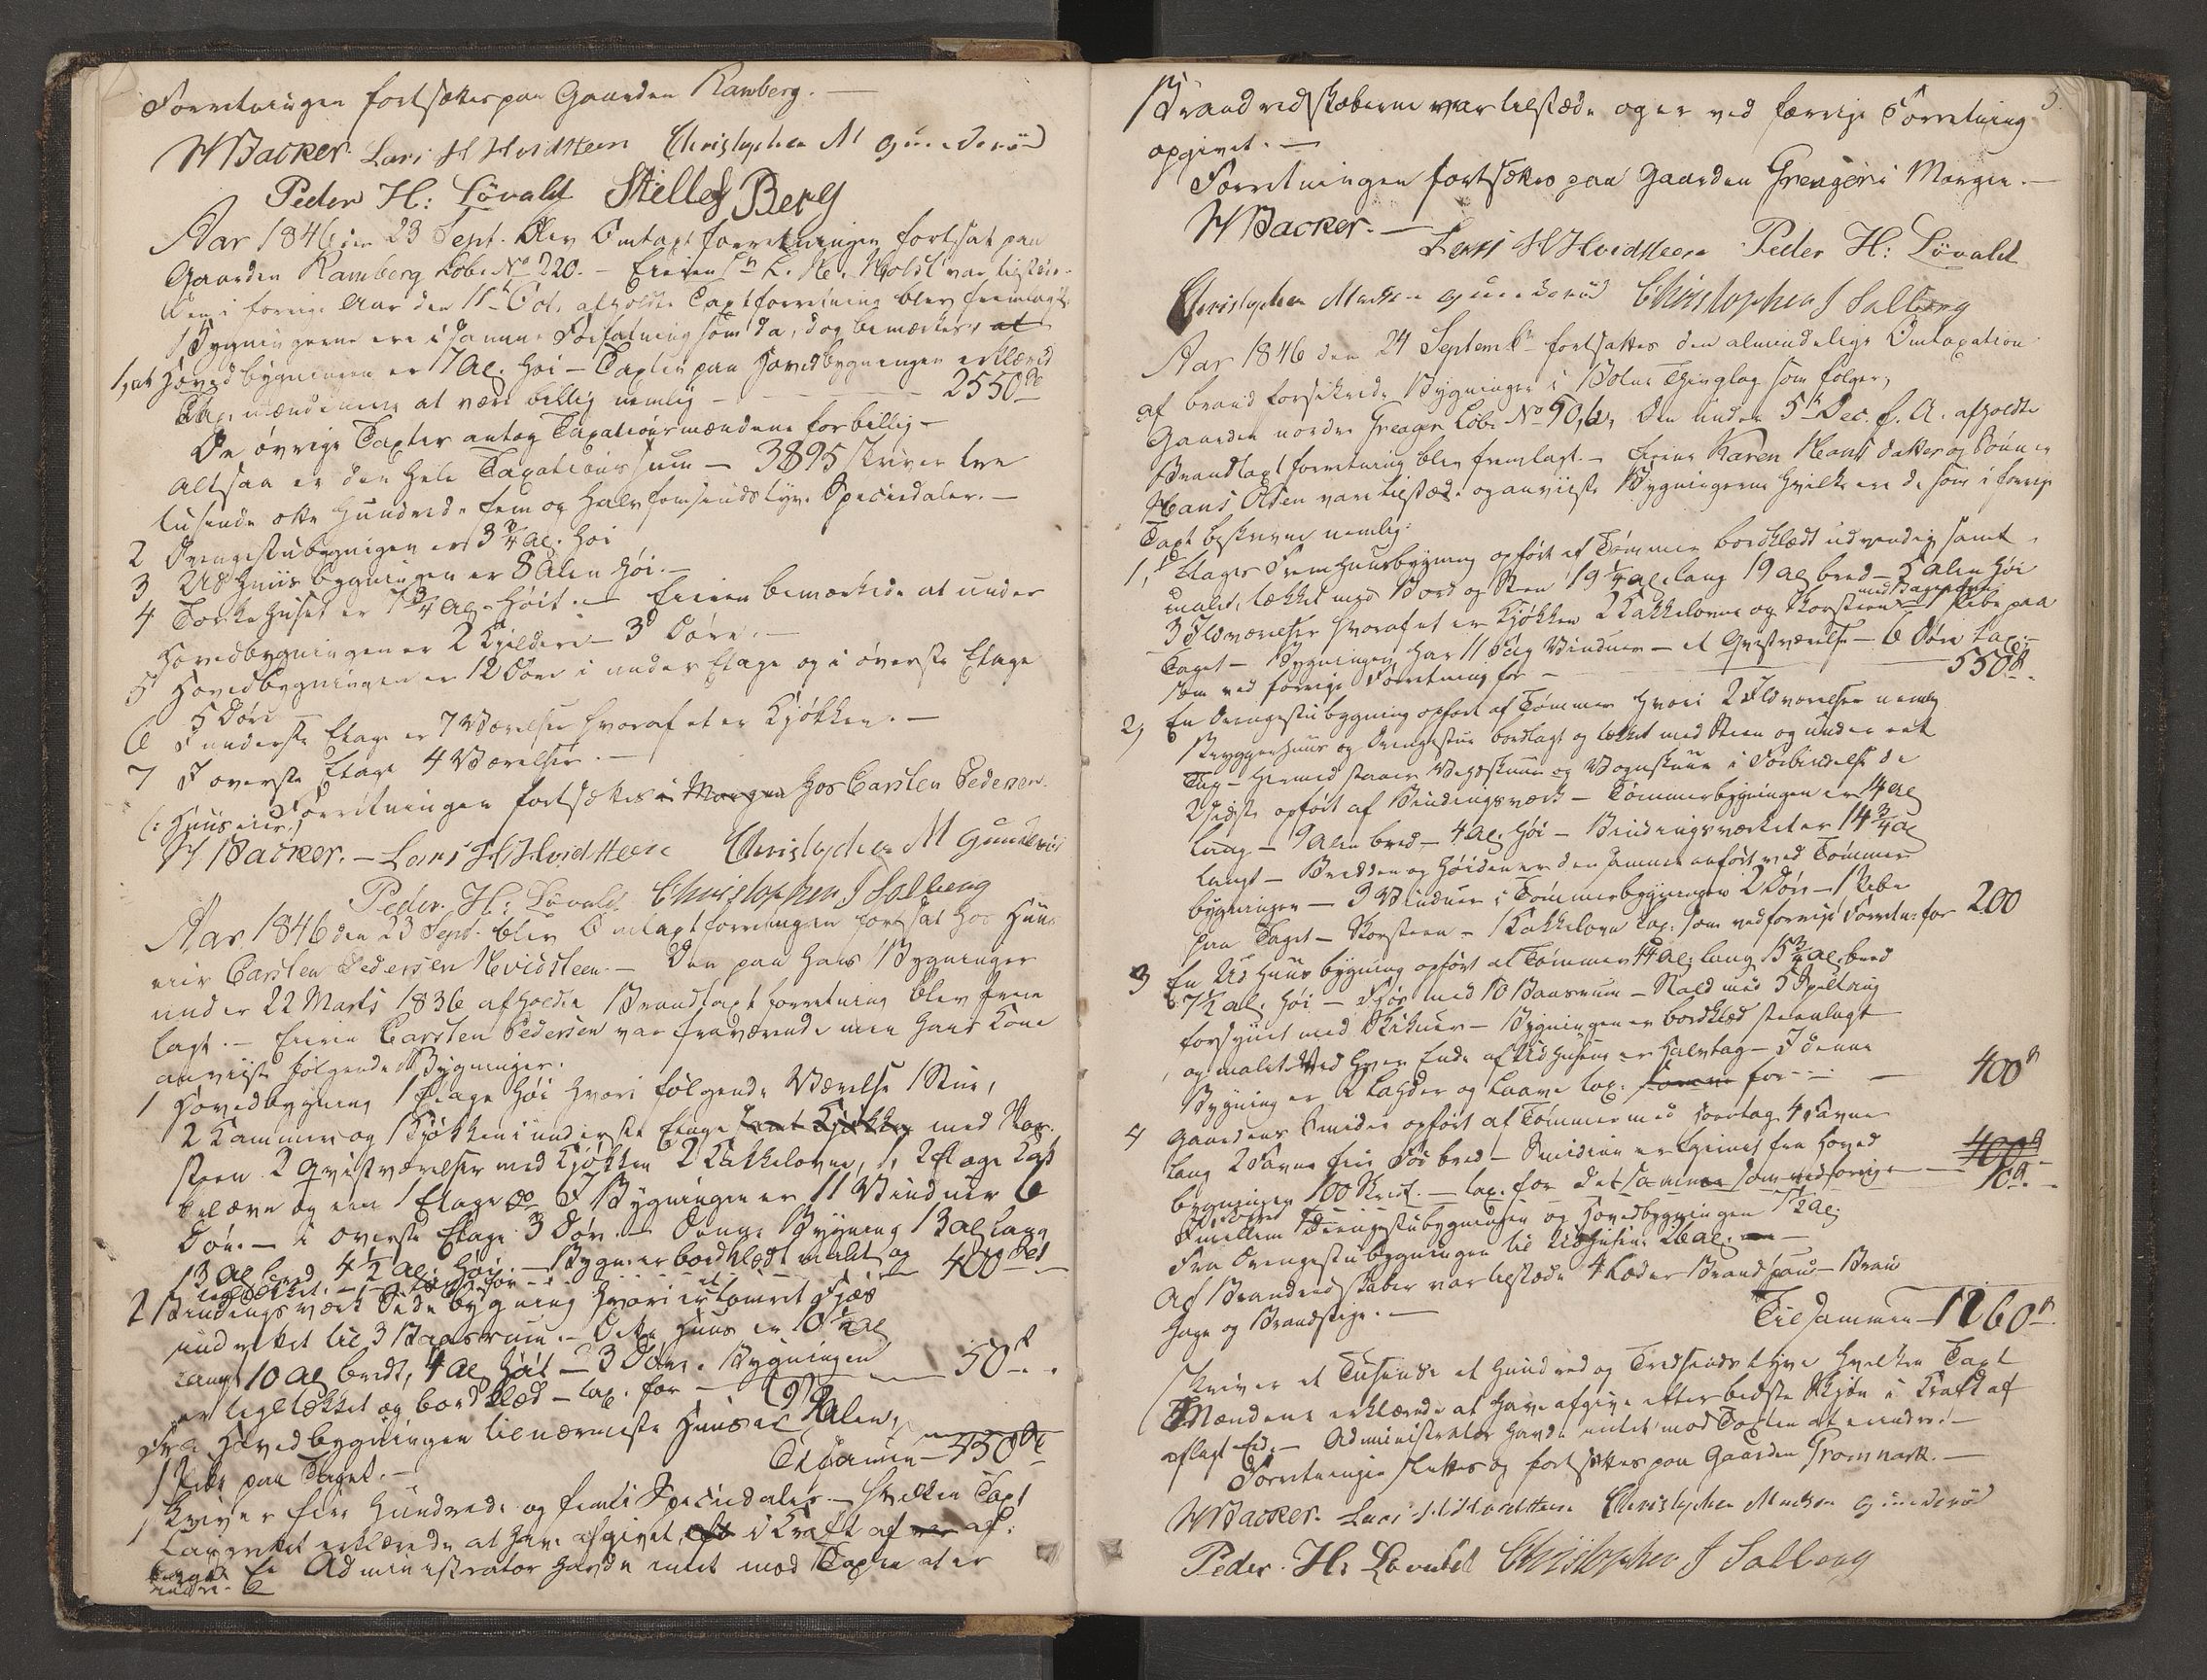 Forretningen fortsættes paa Gaarden Ramberg. —
W Backer. Lars H Hvidsteen Christopher M Gunderud
Peder H: Lövald Stillef Berg
Aar 1846 den 23 Sept. blev Omtaxtforretningen fortsat paa
Gaarden Ramberg Løbe No 220. — Eieren L. He. Holst var tilstede.
Den i forrige Aar den 11te Oct. afholdte Taxtforretning blev fremlagt
Bygningerne ere i samme Forfatning som da, dog bemærkes, at
1, at Hovedbygningen er 7 Al. høi — Taxten paa Hovedbygningen erklærede
Tax. mændene at være billig nemlig — 2550 Sp
De øvrige Taxter antog Taxationsmændene for billig —
altsaa er den hele Taxationssum — 3895 skriver tre
tusende otte Hundrede fem og halvfemsindstyve Speciedaler. —
2 Drengestubygnigen er 3 3/4 Al. høi
3 Udhuusbygningen er 8 Alen høi. —
4 Torkehuset er 7 3/4 Al. høit. — Eieren bemærkede at under
Hovedbygningen er 2 Kjeldere — 3 Döre. —
5 Hovedbygningen er 12 Döre i under Etage og i överste Etage
5 Döre
6 I underste Etage er 7 Værelser hvoraf et er Kjökken. —
7 I overste Etage 4 Værelser. —
Forretningen fortsættes i Morgen hos Carsten Pedersen
(: Huuseier :)
W Backer. — Lars H Hvidsteen Christopher M Gunderud
Peder. H: Lövald Christopher J Solberg
Aar 1846 den 23 Sept. blev Omtaxtforretningen fortsat hos Huus
eier Carsten Pedersen Hvidsteen. — Den paa hans Bygninger
under 22 Marts 1836 afholdte Brandtaxtforretning blev frem
lagt. — Eieren Carsten Pedersen var fraværende men hans Kone
anviiste følgende Bygninger.
1 Hovedbygning 1 Etage høi hvori følgende Værelse 1 Stue,
2 Kammer og 1 Kjökken i underste Etage samt Kjøkken med Skor
steen 2 Qvistværelser med Kjökken 2 Kakkelovne, 1, 2 Etage Kak
kelovn og een 1 Etage do I Bygningen er 11 Vinduer 6
Döre. — i överste Etage 3 Dör. — Denne Bygning 13 Al lang
13 Al bred 4 1/2 Al. høi. — Bygn. er bordklædt malet og 400 Spd
teglstækket. — taxt for —
2 Bindingsværk Sidebygning hvori er et tømret Fjøs
indrettet til 3 Baasrum. — Dette Huus er 10 1/2 Al
langt 10 Al bredt, 4 Al høit — 3 Döre. Bygningen
er teglstækket og bordklæd — tax. for — 50 Sp.
Fra Hovedbygningen til nærmeste Huus er 9 Alen,
1 Pibe paa Taget. — Tilsamen — 450 Sp
Skriver fire Hundrede og femti Speciedaler. — hvilken Taxt
Laugrettet erklærede at have afgivet i Kraft af af:
lagt Ed Administrator havde intet mod Taxten at er
indre.
5.
Brandredskaberne var tilstæde og er ved forrige Forretning
opgivet. —
Forretningen fortsættes paa Gaarden Greager i Morgen. —
W Backer. —
Lars H Hvidsteen Peder H: Lövald
Christopher Madsen Gunderud Christopher J Solberg
Aar 1846 den 24 Septembr fortsattes den almindelige Omtaxation
af brandforsikrede Bygninger i Thinglag som følger,
Gaarden nordre Greager Løbe No 50, b, Den under 5te Dec. f. A. afholdte
Brandtaxtforretning blev fremlagt. — Eierne Karen Hansdatter og Sönnen
Hans Olsen vare tilstæde og anviiste Bygningerne hvilke ere de som i forrige
Taxt beskrevne nemlig:
1, 1 Etages Fremhuusbygning opført af Tømmer bordklædt udvendig samt
malet, tækket med Bord og Steen 19 1/4 Al. lang 19 Al bred — 5 Alen høi
3 Ildværelser hvoraf et er Kjøkken 2 Kakkelovne og Skorsteen med Bagerovn 1 Pibe paa
Taget — Bygningen har 11 Fag Vinduer — et Qvistværelse — 6 Döre tax.
som ved forrige Forretning for — 550 Sp.
2, En Drengestubygning opført af Tømmer hvori 2 Ildværelser nemlig
Bryggerhuus og Drengestue bordlagt og tækket med Steen og under eet
Tag — hermed staaer Vedskuur og Vognskuur i Forbindelse de
2 sidste opført af Bindingsværk — Tømmerbygningen er 14 Al
lang — 9 Alen bred — 4 Al. høi — Bindingsværket er 14 3/4 Al
langt — Bredden og Høiden er den samme anført ved Tømmer
bygningen — 3 Vinduer i Tømmerbygningen 2 Dør — 1 Pibe
paa Taget — Skorsteen — 1 Kakkelovn tax. som ved forrige Forretn. for 200
3 En Udhuusbygning opført af Tømmer 44 Al. lang 15 3/4 Al. bred
7 1/2 Al. høi — Fjös med 10 Baasrum — Stald med 5 Spiltoug
forsynet med — Bygningen er bordklæd steenlagt
og malet. Ved hver Ende af Udhuset er Halvtag — I denne
Bygning er 2 Lahder og Laave tax. for — 400 Sp
4 Gaardens Smidie opført af Tømmer med Bordtag. 4 Favne
lang 2 Favne fire Fod bred — Smidien er fjernet fra Hoved
bygningen 100 Skridt. — tax. for det samme som ved forrige — 10 Sp.
Imellem Drengestubygningen og Hovedbygningen 7 1/2 Al.
Fra Drengestubygningen til Udhuset 26 Al. —
Af Brandredskaber var tilstæde 4 Læder Brandspand — Brand
hage og Brandstige. —
Tilsammen 1160 Sp.
Skriver et Tusende et Hundred og Tredsindstyve hvilken Taxt
Mændene erklærede at have afgive efter bedste Skjøn i Kraft af
aflagt Ed. — Administrator havde intet mod Taxten at erindre. —
Forretningen sluttes og fortsættes paa Gaarden Tromnæss. —
W Backer. Lars H Hvidsteen Christopher Madsen Gunderud
Peder. H: Lövald Christopher J Solberg